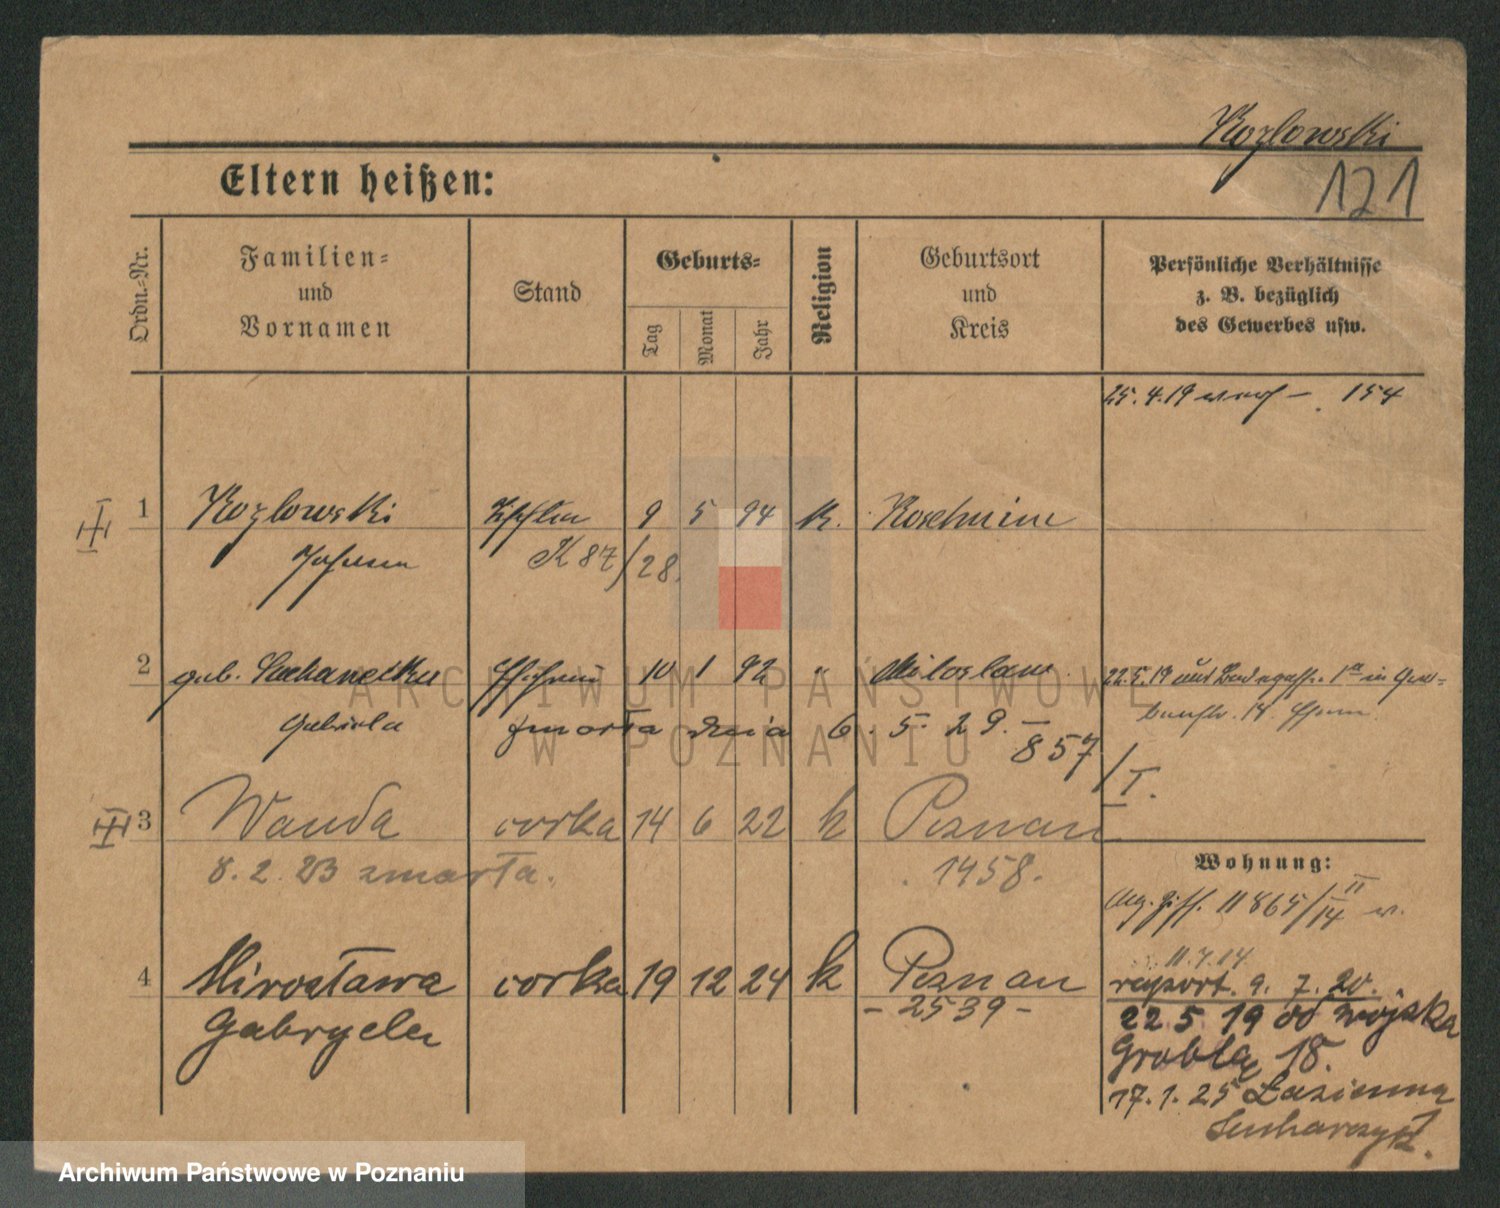 Kozlowski
Eltern heißen:
121
Ordn.-Nr.
Familien-
und
Vornamen
Stand
Geburts-
Tag
Monat
Jahr
Religion
Geburtsort
und
Kreis
Persönliche Verhältnisse
z. B. bezüglich
des Gewerbes usw.
25.4.19 154
1 Kozlowski 9 5 94 K. Koschmin
Johann K 87/28.
2 geb. Ehefrau 10 1 92 " Miloslaw
22.5.19 aus
Gabriela zmarła dnia 6. 5. 29. –
857/I.
3 Wanda córka 14 6 22 k Poznan
8. 2. 23 zmarła. 1458.
Wohnung:
11865/14 II
11.7.14
4 Mirosława córka 19 12 24 k Poznan
Gabryela - 2539 -
raport. 9. 7. 20.
22 5 19 od wojska
Grobla 18.
17.1.25 Łazienna
ARCHIWUM PAŃSTWOWE
W POZNANIU
Archiwum Państwowe w Poznaniu